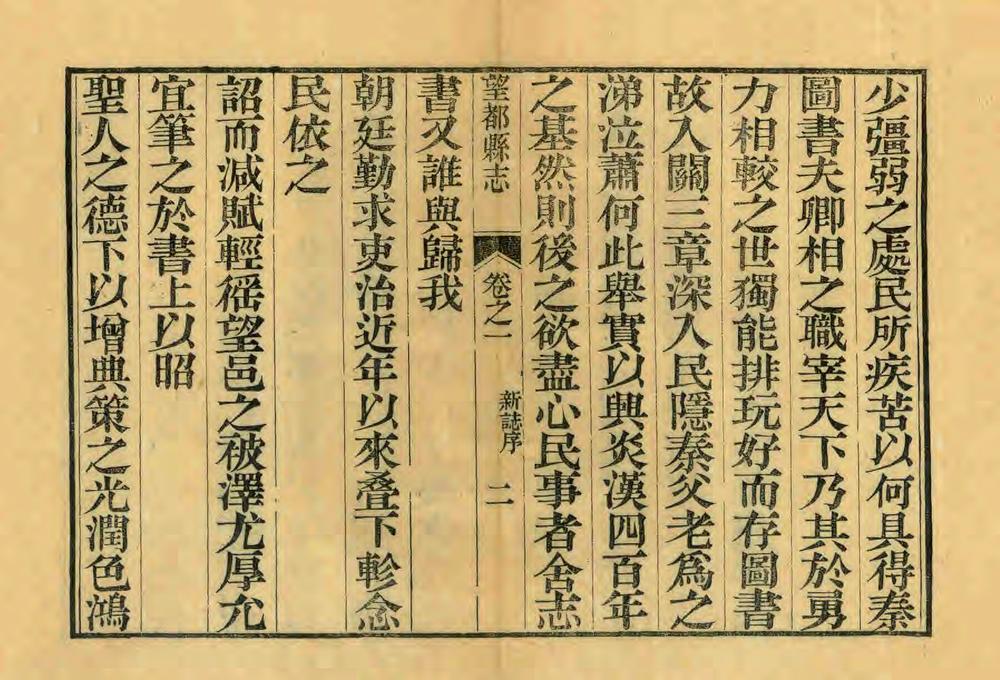 少彊弱之處民所疾苦以何具得秦
圖書夫卿相之職宰天下乃其於勇
力相較之世獨能排玩好而存圖書
故入關三章深入民隱秦父老爲之
涕泣蕭何此舉實以興炎漢四百年
之基然則後之欲盡心民事者舍志
望都縣志
卷之一
新誌序
二
書又誰與歸我
朝廷勤求吏治近年以來叠下軫念
民依之
詔而減賦輕徭望邑之被澤尤厚允
宜筆之於書上以昭
聖人之德下以增典策之光潤色鴻